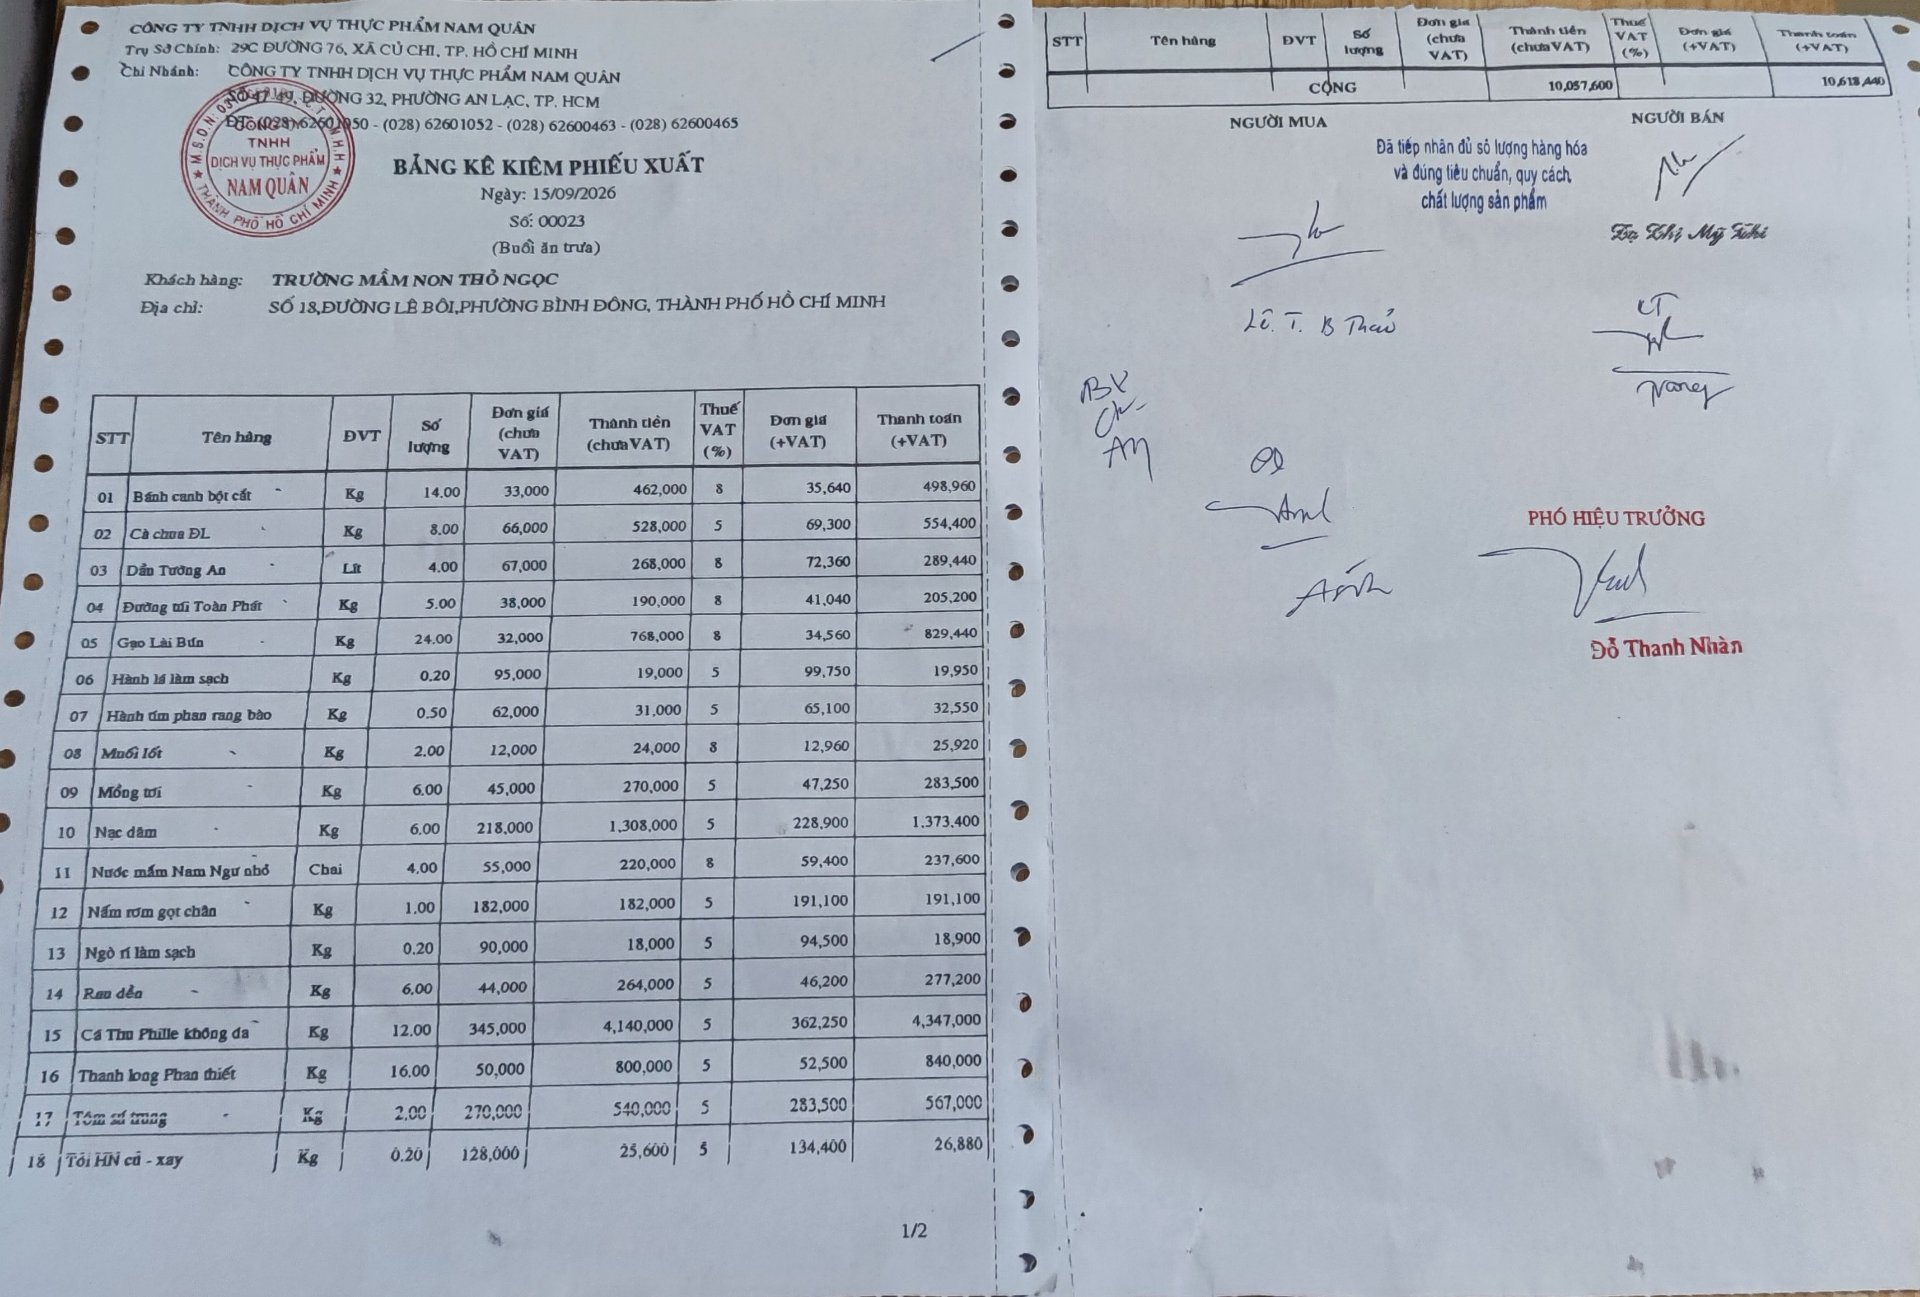 CÔNG TY TNHH DỊCH VỤ THỰC PHẨM NAM QUÂN
Trụ Sở Chính: 29C ĐƯỜNG 76, XÃ CỦ CHI, TP. HỒ CHÍ MINH
Chi Nhánh: CÔNG TY TNHH DỊCH VỤ THỰC PHẨM NAM QUÂN
SỐ 47-49, ĐƯỜNG 32, PHƯỜNG AN LẠC, TP. HCM
ĐT: (028) 62601050 - (028) 62601052 - (028) 62600463 - (028) 62600465
CÔNG TY
TNHH
DỊCH VỤ THỰC PHẨM
NAM QUÂN
THÀNH PHỐ HỒ CHÍ MINH
BẢNG KÊ KIÊM PHIẾU XUẤT
Ngày: 15/09/2026
Số: 00023
(Buổi ăn trưa)
Khách hàng: TRƯỜNG MẦM NON THỎ NGỌC
Địa chỉ: SỐ 18,ĐƯỜNG LÊ BÔI,PHƯỜNG BÌNH ĐÔNG, THÀNH PHỐ HỒ CHÍ MINH
STT Tên hàng ĐVT Số lượng Đơn giá (chưa VAT) Thành tiền (chưa VAT) Thuế VAT (%) Đơn giá (+VAT) Thanh toán (+VAT)
01 Bánh canh bột cắt Kg 14.00 33,000 462,000 8 35,640 498,960
02 Cà chua ĐL Kg 8.00 66,000 528,000 5 69,300 554,400
03 Dần Tường An Lít 4.00 67,000 268,000 8 72,360 289,440
04 Đường túi Toàn Phát Kg 5.00 38,000 190,000 8 41,040 205,200
05 Gạo Lài Bún Kg 24.00 32,000 768,000 8 34,560 829,440
06 Hành lá làm sạch Kg 0.20 95,000 19,000 5 99,750 19,950
07 Hành tím phan rang bào Kg 0.50 62,000 31,000 5 65,100 32,550
08 Muối iốt Kg 2.00 12,000 24,000 8 12,960 25,920
09 Mồng tơi Kg 6.00 45,000 270,000 5 47,250 283,500
10 Nạc dăm Kg 6.00 218,000 1,308,000 5 228,900 1,373,400
11 Nước mắm Nam Ngư nhỏ Chai 4.00 55,000 220,000 8 59,400 237,600
12 Nấm rơm gọt chân Kg 1.00 182,000 182,000 5 191,100 191,100
13 Ngò rí làm sạch Kg 0.20 90,000 18,000 5 94,500 18,900
14 Rau dền Kg 6.00 44,000 264,000 5 46,200 277,200
15 Cá Thu Phille không da Kg 12.00 345,000 4,140,000 5 362,250 4,347,000
16 Thanh long Phan thiết Kg 16.00 50,000 800,000 5 52,500 840,000
17 Tôm sú trung Kg 2.00 270,000 540,000 5 283,500 567,000
18 Tỏi HN củ - xay Kg 0.20 128,000 25,600 5 134,400 26,880
1/2
STT Tên hàng ĐVT Số lượng Đơn giá (chưa VAT) Thành tiền (chưa VAT) Thuế VAT (%) Đơn giá (+VAT) Thanh toán (+VAT)
CỘNG 10,057,600 10,618,440
NGƯỜI MUA NGƯỜI BÁN
Đã tiếp nhận đủ số lượng hàng hóa
và đúng tiêu chuẩn, quy cách,
chất lượng sản phẩm
Lê. T. B Thảo
KT
Trang
BV
PHÓ HIỆU TRƯỞNG
Đỗ Thanh Nhàn